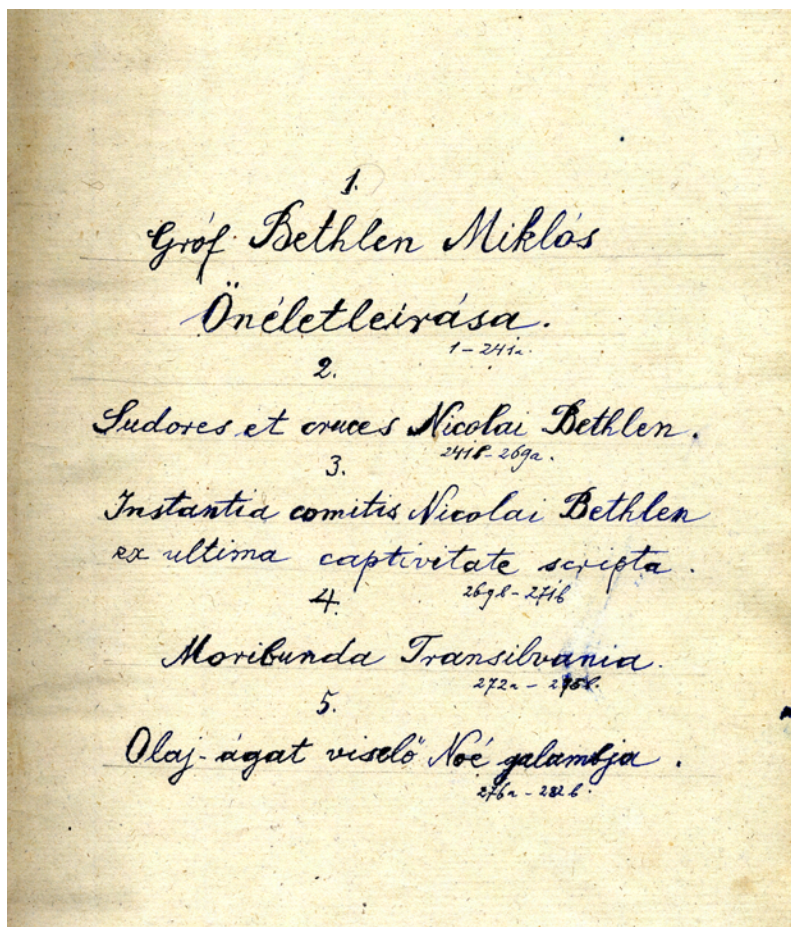 1.
Gróf Bethlen Miklós
Önéletleirása.
1 – 241a.
2.
Sudores et cruces Nicolai Bethlen.
241b – 269a.
3.
Instantia comitis Nicolai Bethlen
ex ultima captivitate scripta.
269b – 271b
4.
Moribunda Transilvania.
272a – 275b.
5.
Olaj-ágat viselő Noé galambja.
276a – 282b.